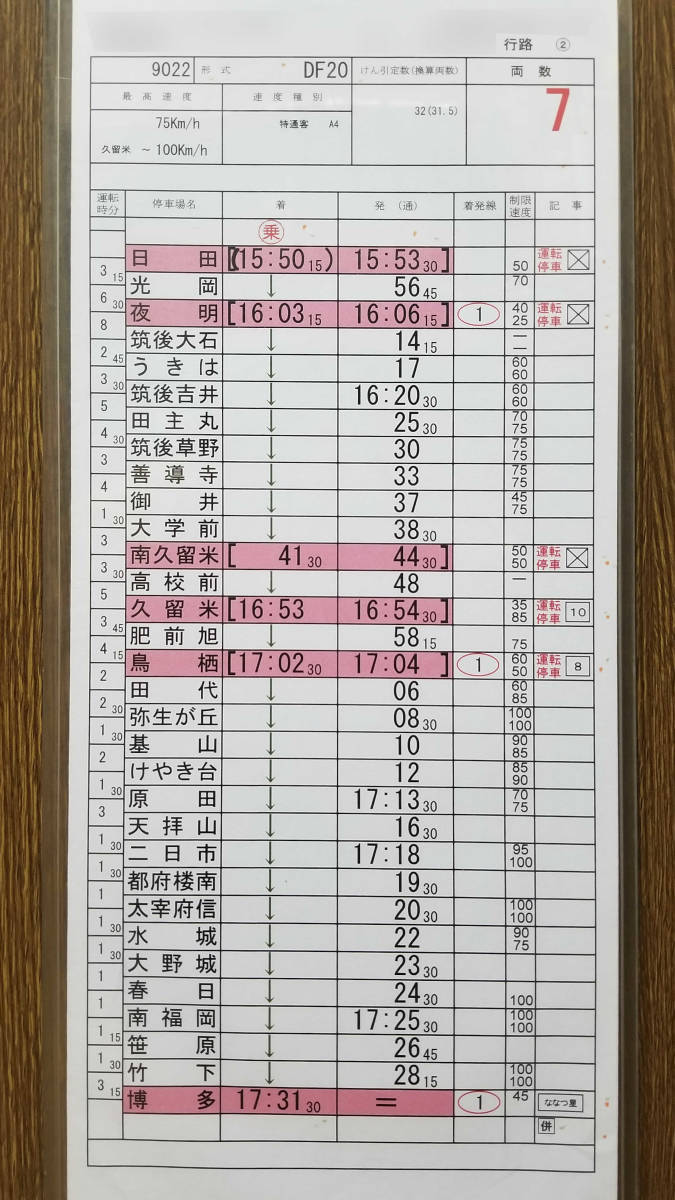 行路 ②
9022 形式 DF20 けん引定数(換算両数) 両数
最高速度 速度種別 7
75Km/h 特通客 A4 32(31.5)
久留米 ～ 100Km/h
運転時分 停車場名 着 発(通) 着発線 制限速度 記事
乗
日田 [(15:50 15) 15:53 30] 50 運転停車
3 15
光岡 ↓ 56 45 70
6 30
夜明 [16:03 15 16:06 15] 1 40 25 運転停車
8
筑後大石 ↓ 14 15 — —
2 45
うきは ↓ 17 60 60
3 30
筑後吉井 ↓ 16:20 30 60 60
5
田主丸 ↓ 25 30 70 75
4 30
筑後草野 ↓ 30 75 75
3
善導寺 ↓ 33 75 75
4
御井 ↓ 37 45 75
1 30
大学前 ↓ 38 30
3
南久留米 [41 30 44 30] 50 50 運転停車
3 30
高校前 ↓ 48 —
5
久留米 [16:53 16:54 30] 35 85 運転停車 10
3 45
肥前旭 ↓ 58 15 75
4 15
鳥栖 [17:02 30 17:04] 1 60 50 運転停車 8
2
田代 ↓ 06 60 85
2 30
弥生が丘 ↓ 08 30 100 100
1 30
基山 ↓ 10 90 85
2
けやき台 ↓ 12 85 90
1 30
原田 ↓ 17:13 30 70 75
3
天拝山 ↓ 16 30
1 30
二日市 ↓ 17:18 95 100
1 30
都府楼南 ↓ 19 30
1
太宰府信 ↓ 20 30 100 100
1 30
水城 ↓ 22 90 75
1 30
大野城 ↓ 23 30
1
春日 ↓ 24 30 100
1
南福岡 ↓ 17:25 30 100 100
1 15
笹原 ↓ 26 45
1 30
竹下 ↓ 28 15 100 100
3 15
博多 17:31 30 = 1 45 ななつ星
併